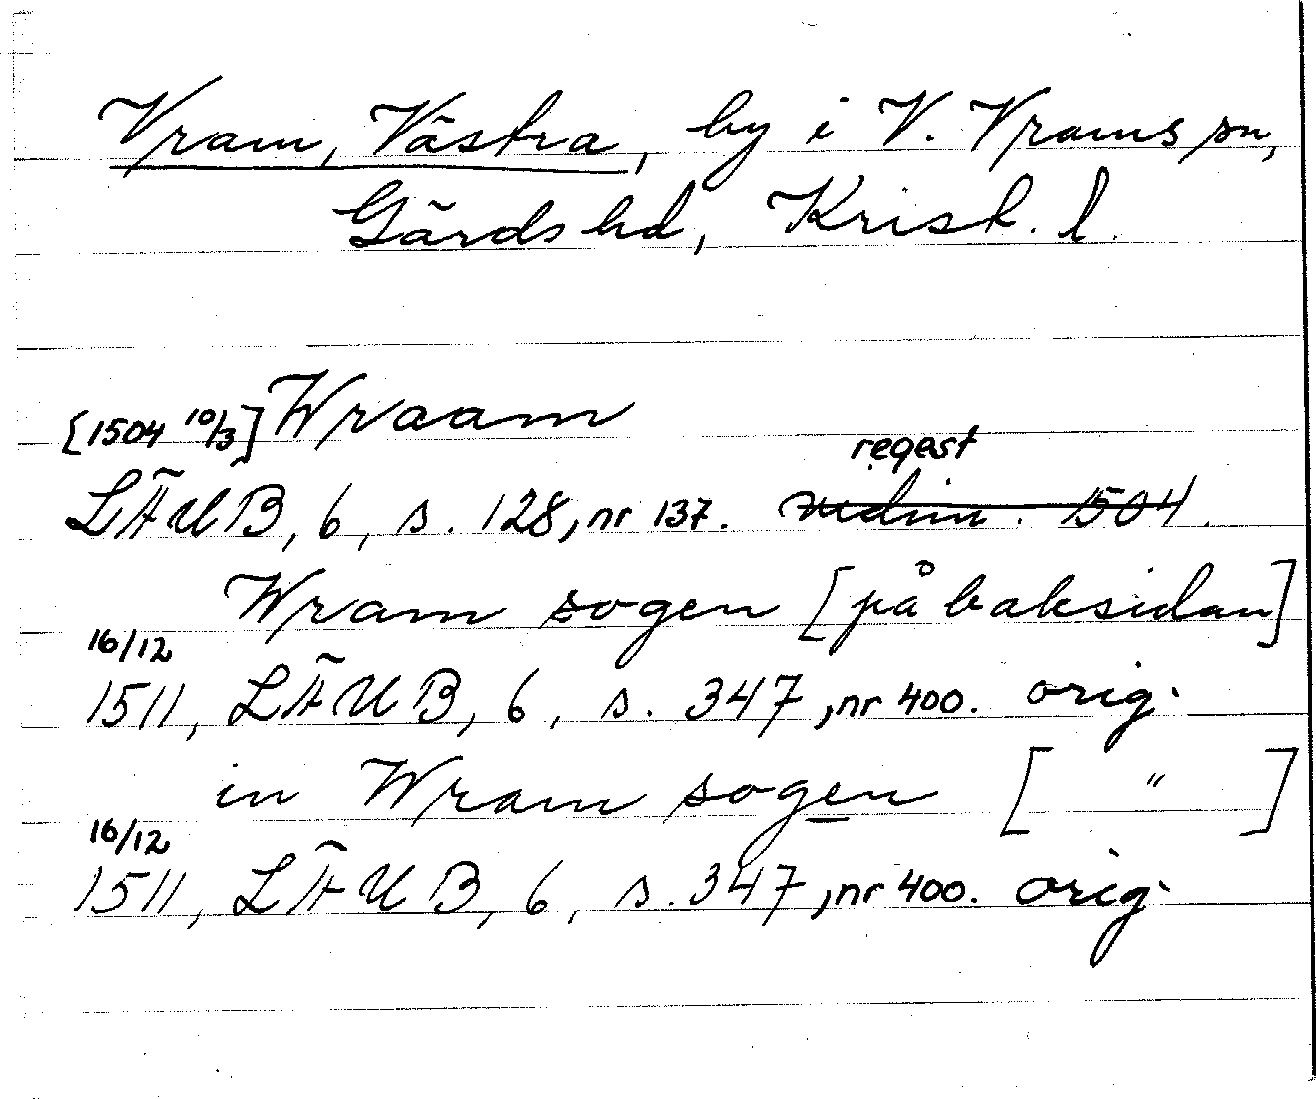 Vram, Västra, by i V. Vrams sn,
Gärds hd, Krist. l.
[1504 10/3] Wraam
regest
LÄUB, 6, s. 128, nr 137. vidim. 1504.
Wram sogen [på baksidan]
16/12
1511, LÄUB, 6, s. 347, nr 400. orig.
in Wram sogen [ " ]
16/12
1511, LÄUB, 6, s. 347, nr 400. orig.